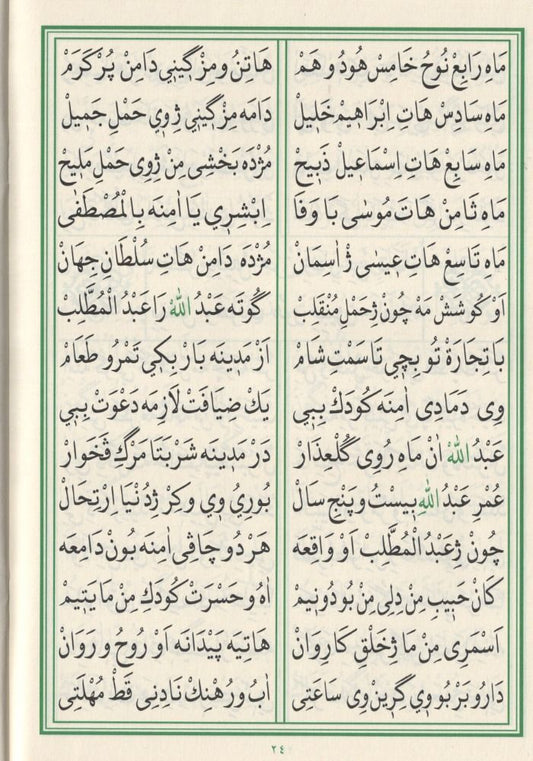 مَاهِ رَابِعْ نُوحُ خَامِسْ هُودُ و هَمْ هَاتِنُ و مِزْگِينِي دَامِنْ پُرْ كَرَمْ
مَاهِ سَادِسْ هَاتِ اِبْرَاهِيمْ خَلِيلْ دَامَه مِزْگِينِي ژِوِي حَمْلِ جَمِيلْ
مَاهِ سَابِعْ هَاتِ اِسْمَاعِيلْ ذَبِيحْ مُژْدَه بَخْشِى مِنْ ژِوِى حَمْلِ مَلِيحْ
مَاهِ ثَامِنْ هَاتَ مُوسٰى بَا وَفَا اِبْشِرِي يَا اٰمِنَه بِالْمُصْطَفٰى
مَاهِ تَاسِعْ هَاتِ عِيسٰى ژْ اٰسِمَانْ مُژْدَه دَامِنْ هَاتِ سُلْطَانِ جِهَانْ
اَوْ كُو شَشْ مَه چُونْ ژِحَمْلِ مُنْقَلِبْ گُوتَه عَبْدُ اللهْ رَا عَبْدُ الْمُطَّلِبْ
بَا تِجَارَةْ تُو بِچِي تَا سَمْتِ شَامْ اَزْ مَدِينَه بَارْ بِكِي تَمْرُ و طَعَامْ
وِى دَمَادِى اٰمِنَه كُودَكْ بِبِي يَكْ ضِيَافَتْ لَازِمَه دَعْوَتْ بِبِي
عَبْدُ اللهْ اٰنْ مَاهِ رُوىِ گُلْعِذَارْ دَرْ مَدِينَه شَرْبَتَا مَرْگِ ڤَخْوَارْ
عُمْرِ عَبْدُ اللهِ بِيسْتُ و پَنْجِ سَالْ بُورِي وِي وَكِرْ ژِدُنْيَا اِرْتِحَالْ
چُونْ ژِعَبْدُ الْمُطَّلِبْ اَوْ وَاقِعَه هَرْ دُو چَاڤِى اٰمِنَه بُونْ دَامِعَه
كَانْ حَبِيبِ مِنْ دِلِى مِنْ بُو دُونِيمْ اٰهُ و حَسْرَتْ كُودَكِ مِنْ مَا يَتِيمْ
اَسْمَرِى مِنْ مَا ژِخَلْقِ كَارِوَانْ هَاتِيَه پَيْدَانَه اَوْ رُوحُ و رَوَانْ
دَارُ و بَرْ بُو وِي گِرِينْ وِى سَاعَتِى اٰبُ و رُهْنِكْ نَادِنِى قَطْ مُهْلَتِى
٢٤